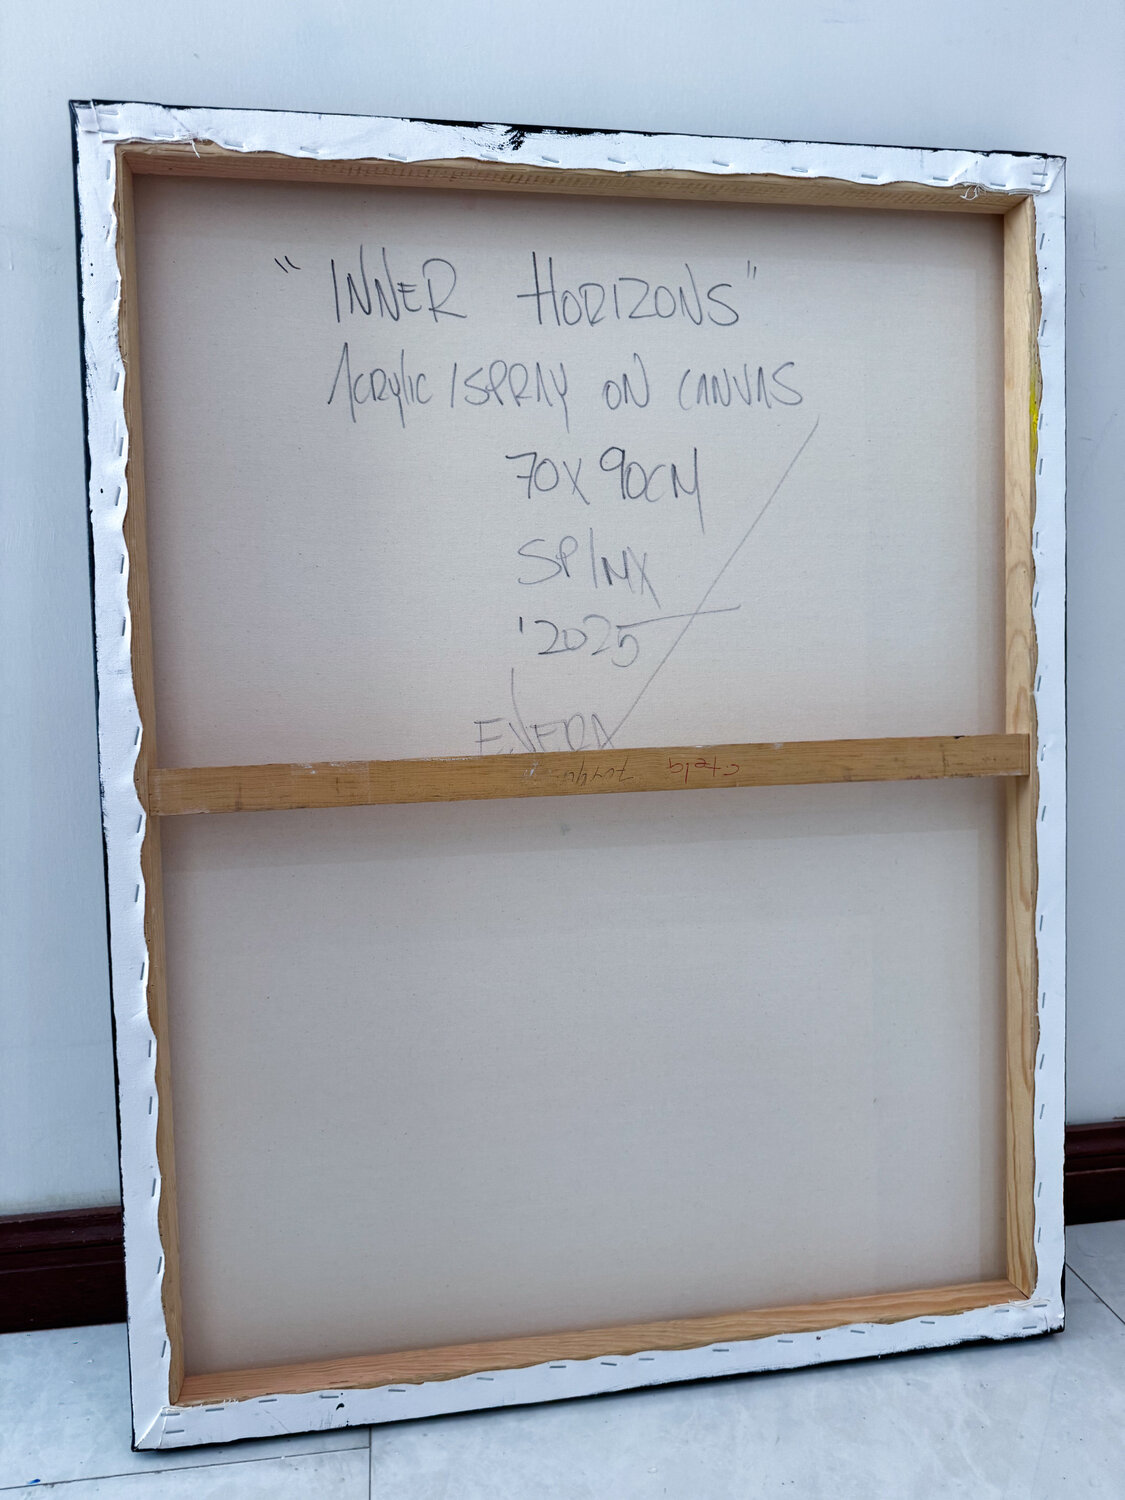 "INNER HORIZONS"
ACRYLIC/SPRAY ON CANVAS
70X90CM
SP/MX
'2025